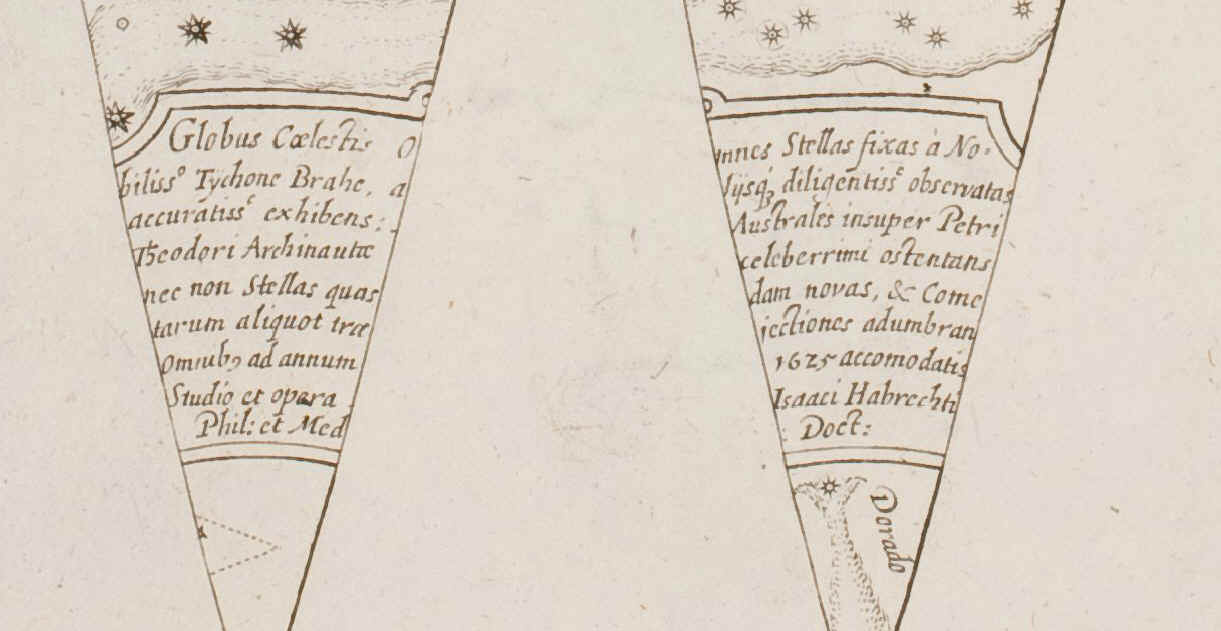 Globus Cœlestis O mnes Stellas fixas à No-
bilissº Tÿchone Brahe, a lijsqꝫ diligentissᵉ observatas
accuratissᵉ exhibens: Australes insuper Petri
Theodori Archinautæ celeberrimi ostentans
nec non Stellas quas dam novas, & Come
tarum aliquot træ jectiones adumbran
Omnibꝰ ad annum 1625 accomodatis
Studio et opera Isaaci Habrechti
Phil: et Med : Doct:
Dorado